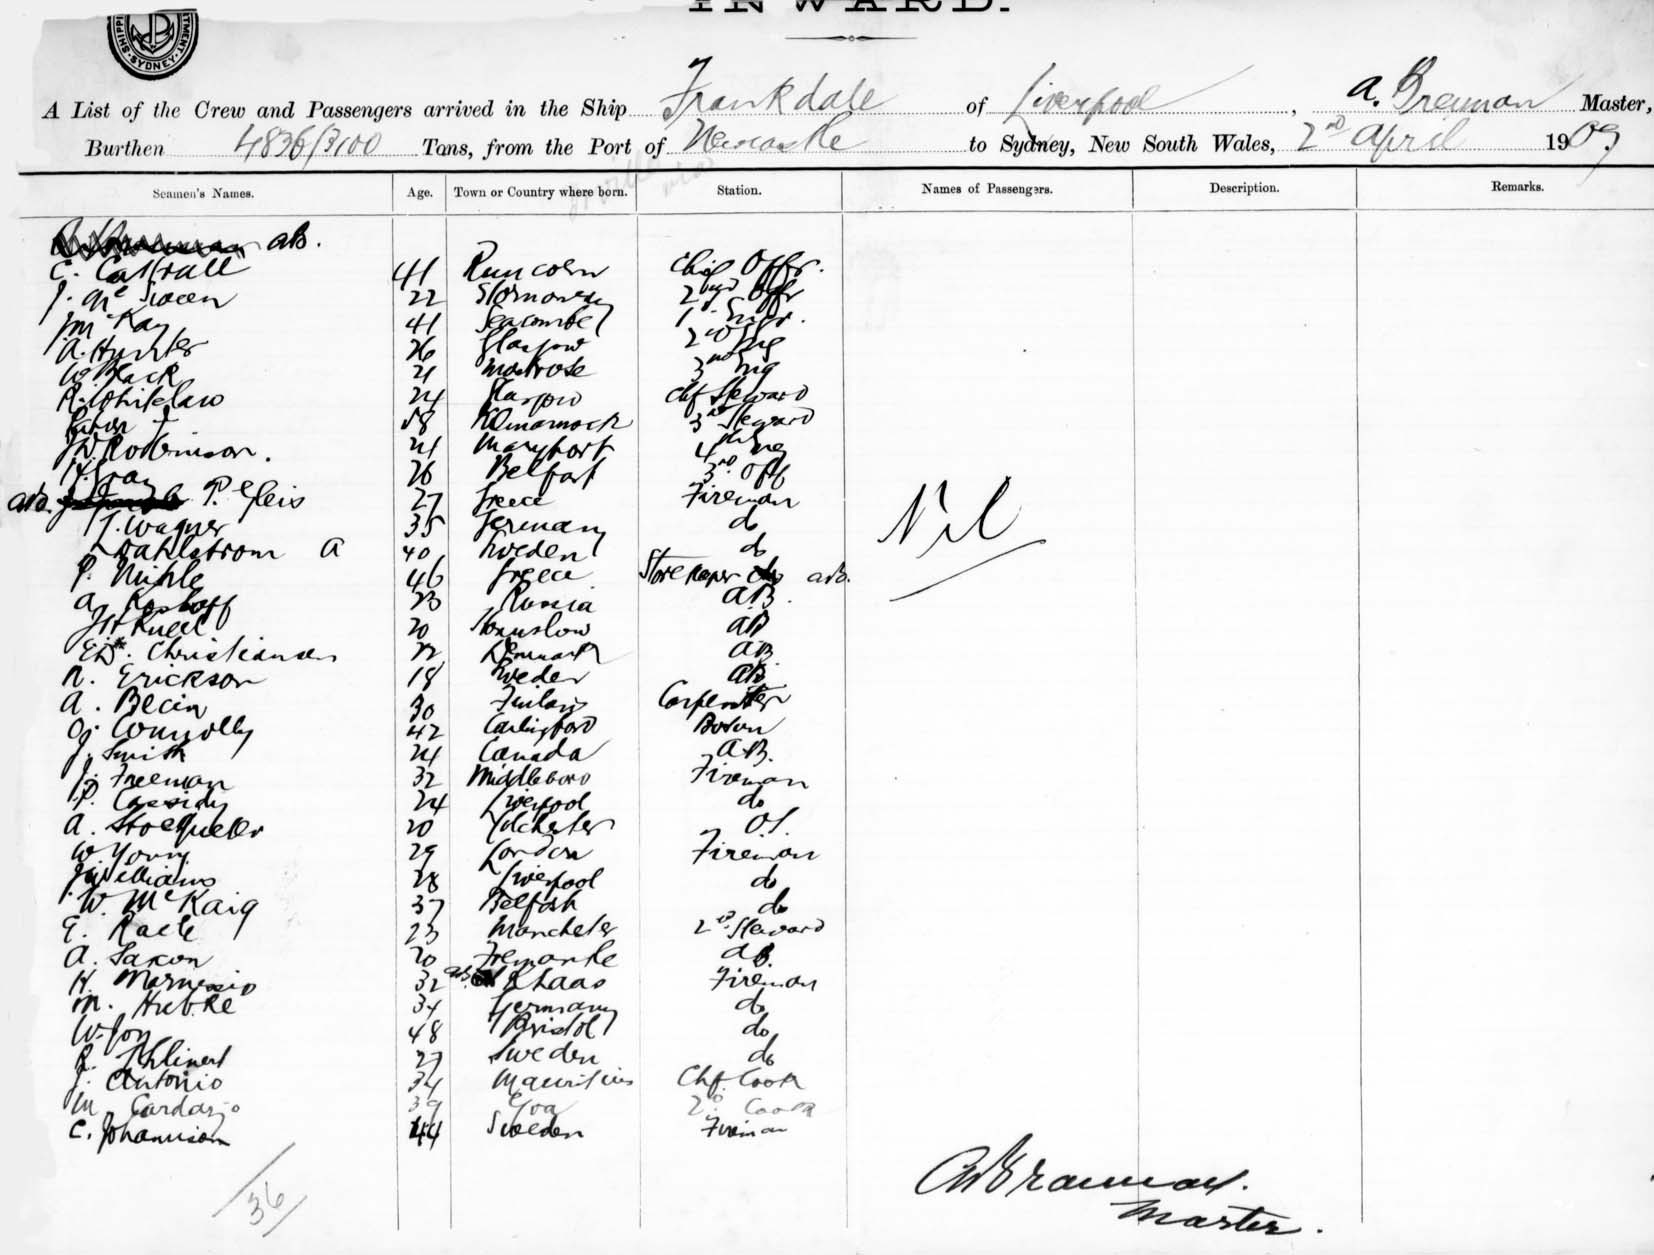 INWARD.
SYDNEY
A List of the Crew and Passengers arrived in the Ship Frankdale of Liverpool, A. Brennan Master,
Burthen 4836/3100 Tons, from the Port of Newcastle to Sydney, New South Wales, 2nd April 1909
Seamen's Names. Age. Town or Country where born. Station. Names of Passengers. Description. Remarks.
C. Catrall 41 Runcorn Chief Offr.
J. McSween 22 Stornoway 2nd Offr
Jn Kay 41 Seacombe 1st Engr.
A. Hunter 26 Glasgow 2nd Eng
W. Black 21 Montrose 3rd Eng
R. Whitelaw 24 Glasgow Chf Steward
58 Kilmarnock 3rd Steward
J W. Robinson. 21 Maryport 4th Eng
H. Gray 26 Belfast 3rd Off
27 Greece Fireman
J. Wagner 35 Germany do
Dahlstrom A 40 Sweden do
P. 46 Greece Storekeeper
A. 23 Russia A.B.
20 AB
Christiansen 22 Denmark AB
R. Erickson 18 Sweden AB
A. 30 Finland Carpenter
O. Connolly 42 Carlingford Bosun
J. Smith 24 Canada A.B.
J. Freeman 32 Middleboro Fireman
P. Cassidy 24 Liverpool do
A. 20 Colchester O.S.
W. Young 29 London Fireman
J. Williams 28 Liverpool do
W. McKaig 37 Belfast do
E. 23 Manchester 2nd Steward
A. Saxon 20 Fremantle AB.
H. 32 Fireman
M. Hubke 34 Germany do
W. Joy 48 Bristol do
27 Sweden do
J. Antonio 34 Mauritius Chf. Cook
M. Cardazo 39 Goa 2nd Cook
C. Johannison 44 Sweden Fireman
Nil
36
A Brennan.
Master.